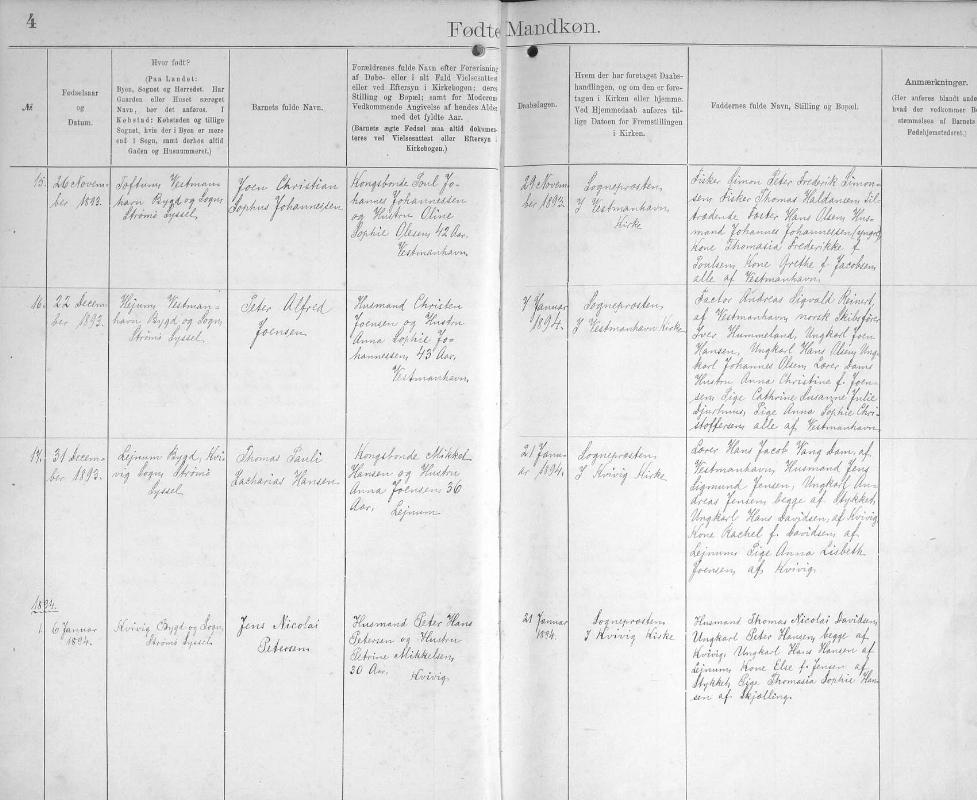 4
Fødte Mandkøn.
№
Fødselsaar
og
Datum.
Hvor født?
(Paa Landet:
Byen, Sognet og Herredet. Har
Gaarden eller Huset særeget
Navn, bør det anføres. I
Købstad: Købstaden og tillige
Sognet, hvis der i Byen er mere
end 1 Sogn, samt derhos altid
Gaden og Husnummeret.)
Barnets fulde Navn.
Forældrenes fulde Navn efter Forevisning
af Døbe- eller i alt Fald Vielsesattest
eller ved Eftersyn i Kirkebogen; deres
Stilling og Bopæl; samt for Moderens
Vedkommende Angivelse af hendes Alder
med det fyldte Aar.
(Barnets ægte Fødsel maa altid dokumen-
teres ved Vielsesattest eller Eftersyn i
Kirkebogen.)
Daabsdagen.
Hvem der har foretaget Daabs-
handlingen, og om den er fore-
tagen i Kirken eller hjemme.
Ved Hjemmedaab anføres til-
lige Datoen for Fremstillingen
i Kirken.
Faddernes fulde Navn, Stilling og Bopæl.
Anmærkninger.
(Her anføres blandt ande
hvad der vedkommer Be
stemmelsen af Barnets
Fødehjemstederet.)
15.
26 Novem-
ber 1893.
Toftum, Vestman-
havn Bygd og Sogn,
Strømø Syssel.
Joen Christian
Sophus Johannessen
Kongsbonde Poul Jo-
hannes Johannessen
og Hustru Oline
Sophie Olesen, 42 Aar.
Vestmanhavn
29 Novem-
ber 1893.
Sogneprosten,
I Vestmanhavn
Kirke
Fisker Simon Peter Frederik Simon-
sen, Fisker Thomas Haldansen, til-
trædende Foster Hans Olsen, Hus-
mand Johannes Johannessen, yngre,
Kone Thomasia Frederikke f.
Poulsen, Kone Grethe f. Jacobsen,
alle af Vestmanhavn.
16.
22 Decem-
ber 1893.
Hejum, Vestman-
havn Bygd og Sogn,
Strømø Syssel.
Peter Alfred
Joensen
Husmand Christen
Joensen og Hustru
Anna Sophie Jo-
hannessen, 43 Aar.
Vestmanhavn,
7 Januar
1894.
Sogneprosten,
I Vestmanhavn Kirke
Factor Andreas Sigvald Reinert,
af Vestmanhavn, norsk Skibsfører
Iver Hummeland, Ungkarl Joen
Hansen, Ungkarl Hans Olsen, Ung-
karl Johannes Olsen, Lærer Dams
Hustru Anna Christine f. Joen-
sen, Pige Cathrine Susanne Julie
Djurhuus, Pige Anna Sophie Chri-
stoffersen, alle af Vestmanhavn.
17.
31 Decem-
ber 1893.
Lejnum Bygd, Kvi-
vig Sogn, Strømø
Syssel
Thomas Pauli
Zacharias Hansen.
Kongsbonde Mikkel
Hansen og Hustru
Anna Joensen, 36
Aar. Lejnum
21 Janu-
ar 1894.
Sogneprosten,
I Kvivig Kirke
Lærer Hans Jacob Vang Dam, af
Vestmanhavn, Husmand Jens
Sigmund Jensen, Ungkarl An-
dreas Jensen, begge af Stykket,
Ungkarl Hans Davidsen, af Kvivig,
Kone Rachel f. Davidsen, af
Lejnum, Pige Anna Lisbeth
Joensen, af Kvivig.
1894.
1.
6 Januar
1894.
Kvivig Bygd og Sogn,
Strømø Syssel
Jens Nicolai
Petersen
Husmand Peter Hans
Petersen og Hustru
Petrine Mikkelsen,
30 Aar. Kvivig
21 Januar
1894.
Sogneprosten,
I Kvivig Kirke
Husmand Thomas Nicolai Davidsen,
Ungkarl Peter Hansen, begge af
Kvivig, Ungkarl Hans Hansen af
Lejnum, Kone Else f. Jensen af
Stykket, Pige Thomasia Sophie Han-
sen af Skjælling.